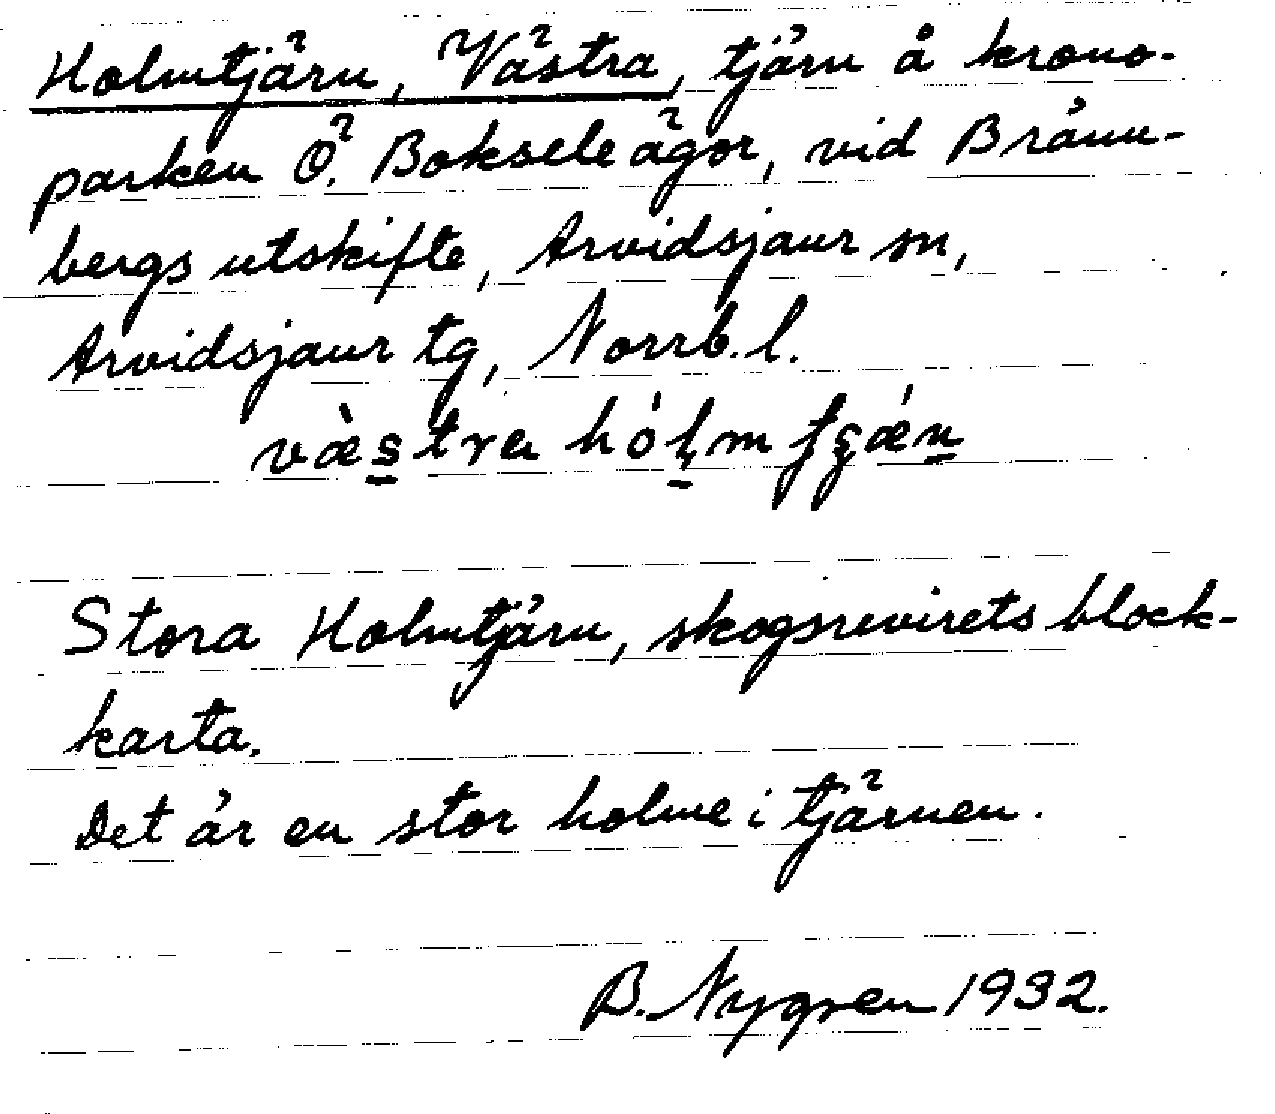 Holmtjärn, Västra, tjärn å krono-
parken Ö. Boksele ägor, vid Bränn-
bergs utskifte, Arvidsjaur sn,
Arvidsjaur tg, Norrb. l.
væ̀stra hólm
Stora Holmtjärn, skogsrevirets block-
karta.
Det är en stor holme i tjärnen.
B. Nygren 1932.